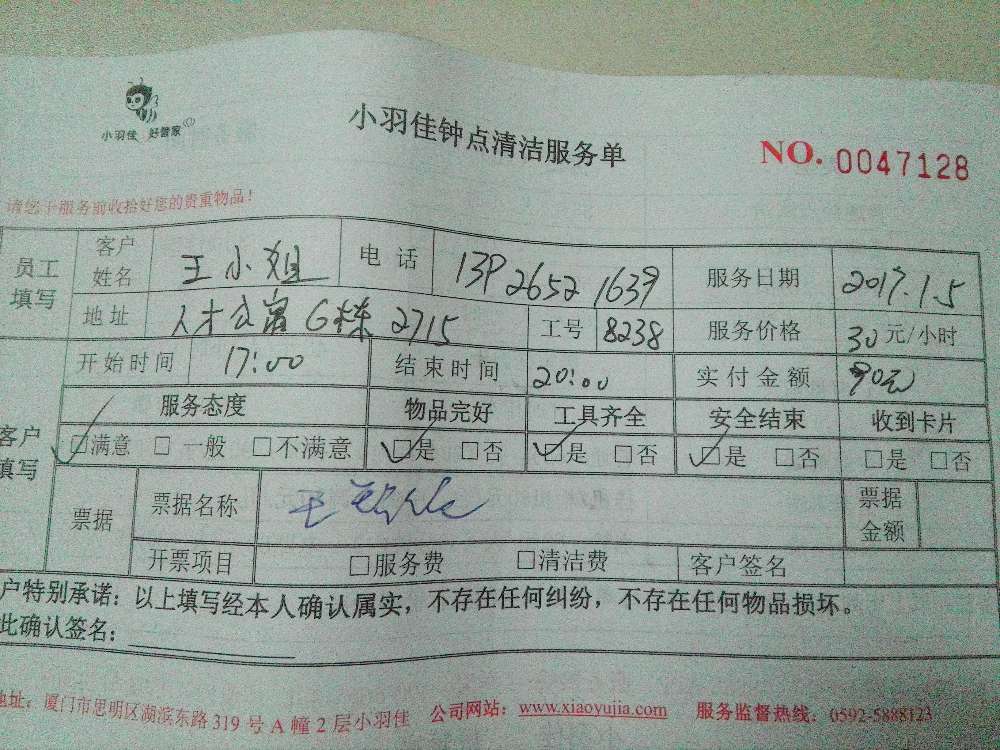 小羽佳 好管家
小羽佳钟点清洁服务单
NO. 0047128
请您于服务前收拾好您的贵重物品！
员工填写 客户姓名 王小姐 电话 139 2652 1639 服务日期 2017.1.5
地址 人才公寓G栋 2715 工号 8238 服务价格 30 元/小时
开始时间 17:00 结束时间 20:00 实付金额 90元
客户填写 服务态度 物品完好 工具齐全 安全结束 收到卡片
☑满意 □一般 □不满意 ☑是 □否 ☑是 □否 ☑是 □否 □是 □否
票据 票据名称 票据金额
开票项目 □服务费 □清洁费 客户签名
户特别承诺：以上填写经本人确认属实，不存在任何纠纷，不存在任何物品损坏。
此确认签名：
地址：厦门市思明区湖滨东路 319 号 A 幢 2 层小羽佳 公司网站：www.xiaoyujia.com 服务监督热线：0592-5888123